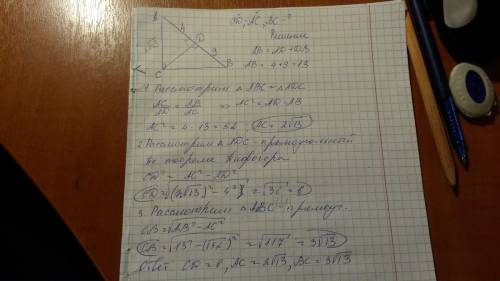 CD, AC, BC - ?
Решение
AB = AD + DB
AB = 4 + 9 = 13
A
4
D
9
B
C
1 Рассмотрим △ ABC и △ ADC
AC/AD = AB/AC => AC² = AD · AB
AC² = 4 · 13 = 52 AC = 2√13
2. Рассмотрим △ ADC - прямоугольный
По теореме Пифагора
CD² = AC² - AD²
CD = √(2√13)² - 4² = √36 = 6
3. Рассмотрим △ ABC - прямоуг.
CB = √AB² - AC²
CB = √13² - (√52)² = √117 = 3√13
Ответ CD = 6, AC = 2√13, BC = 3√13